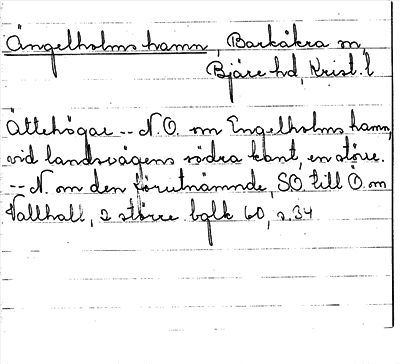 Ängelholms hamn, Barkåkra sn,
Bjäre hd, Krist. l
Ättehögar -- N.O. om Engelholms hamn,
vid landsvägens södra kant, en större.
-- N. om den förutnämnde, SO till Ö. om
Vallhall, 2 större bglk 60, s. 34